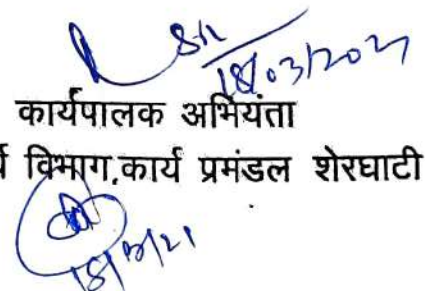 18/03/2021
कार्यपालक अभियंता
विभाग,कार्य प्रमंडल शेरघाटी